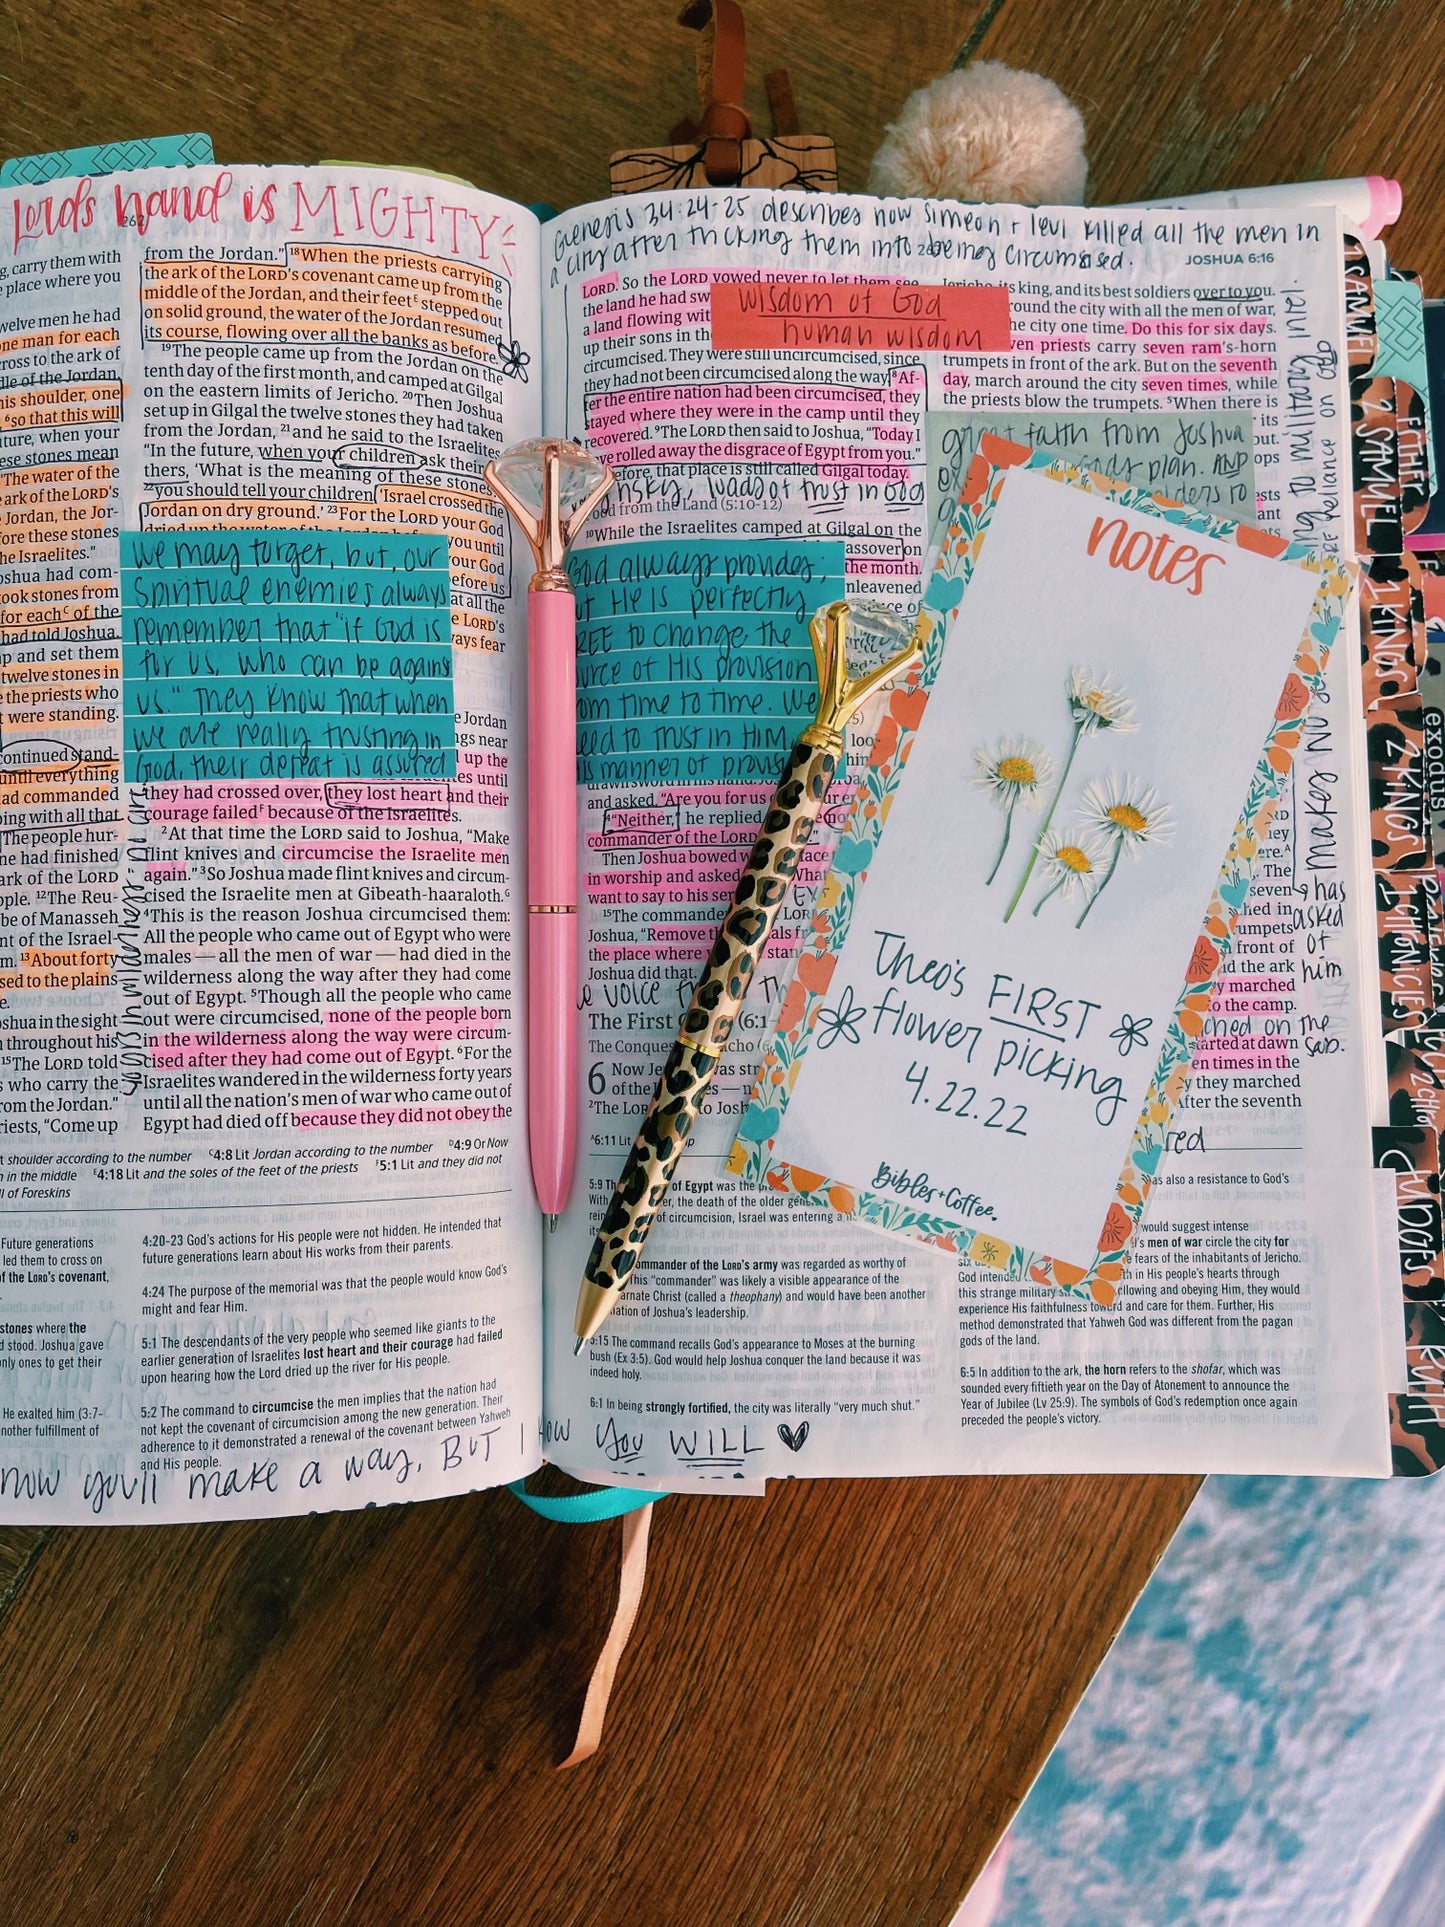 Lords hand is MIGHTY
262
g, carry them with
e place where you
welve men he had
one man for each
cross to the ark of
dle of the Jordan
his shoulder, one
6so that this will
uture, when your
ese stones mean
The water of the
ark of the LORD's
Jordan, the Jor-
fore these stones
he Israelites."
shua had com-
ook stones from
for eachC of the
had told Joshua.
p and set them
twelve stones in
e the priests who
t were standing.
continued stand-
until everything
ad commanded
ping with all that
The people hur-
ne had finished
ark of the LORD
ple. 12The Reu-
be of Manasseh
nt of the Israel-
m. 13About forty
sed to the plains
shua in the sight
throughout his
15The LORD told
s who carry the
rom the Jordan."
riests, "Come up
from the Jordan." 18When the priests carrying
the ark of the LORD's covenant came up from the
middle of the Jordan, and their feetE stepped out
on solid ground, the water of the Jordan resumed
its course, flowing over all the banks as before.
19The people came up from the Jordan on the
tenth day of the first month, and camped at Gilgal
on the eastern limits of Jericho. 20Then Joshua
set up in Gilgal the twelve stones they had taken
from the Jordan, 21and he said to the Israelites,
"In the future, when your children ask their
thers, 'What is the meaning of these stones
22you should tell your children, 'Israel crossed the
Jordan on dry ground.' 23For the LORD your God
dried up the water of the Jordan before
you until
your God
efore us
at all the
e LORD's
ays fear
we may forget, but, our
spiritual enemies always
remember that "if God is
for us, who can be against
us." They know that when
we are really trusting in
God, their defeat is assured
e Jordan
ngs near
up the
tes until
they had crossed over, they lost heart and their
courage failedF because of the Israelites.
2At that time the LORD said to Joshua, "Make
flint knives and circumcise the Israelite men
again." 3So Joshua made flint knives and circum-
cised the Israelite men at Gibeath-haaraloth.G
4This is the reason Joshua circumcised them:
All the people who came out of Egypt who were
males — all the men of war — had died in the
wilderness along the way after they had come
out of Egypt. 5Though all the people who came
out were circumcised, none of the people born
in the wilderness along the way were circum-
cised after they had come out of Egypt. 6For the
Israelites wandered in the wilderness forty years
until all the nation's men of war who came out of
Egypt had died off because they did not obey the
t shoulder according to the number C4:8 Lit Jordan according to the number D4:9 Or Now
n in the middle E4:18 Lit and the soles of the feet of the priests F5:1 Lit and they did not
ll of Foreskins
Future generations
led them to cross on
of the LORD's covenant,
stones where the
d stood. Joshua gave
nly ones to get their
He exalted him (3:7-
nother fulfillment of
4:20-23 God's actions for His people were not hidden. He intended that
future generations learn about His works from their parents.
4:24 The purpose of the memorial was that the people would know God's
might and fear Him.
5:1 The descendants of the very people who seemed like giants to the
earlier generation of Israelites lost heart and their courage had failed
upon hearing how the Lord dried up the river for His people.
5:2 The command to circumcise the men implies that the nation had
not kept the covenant of circumcision among the new generation. Their
adherence to it demonstrated a renewal of the covenant between Yahweh
and His people.
how you'll make a way, BUT I
know You WILL
Genesis 34:24-25 describes how Simeon + Levi killed all the men in
a city after tricking them into being circumcised.
JOSHUA 6:16
LORD. So the LORD vowed never to let them see
the land he had sw
a land flowing wit
up their sons in th
circumcised. They were still uncircumcised, since
they had not been circumcised along the way. 8Af-
ter the entire nation had been circumcised, they
stayed where they were in the camp until they
recovered. 9The LORD then said to Joshua, "Today I
ve rolled away the disgrace of Egypt from you."
efore, that place is still called Gilgal today.
wisdom of God
human wisdom
risky, loads of trust in God
ood from the Land (5:10-12)
10While the Israelites camped at Gilgal on the
assover on
the month.
nleavened
God always provides,
ut He is perfectly
REE to change the
ource of His provision
om time to time. We
eed to trust in Him
is manner of provis
and asked, "Are you for us
14"Neither," he replied.
commander of the LORD
Then Joshua bowed face
in worship and asked What
want to say to his ser
15The commander LORD
Joshua, "Remove th als fr
the place where stan
Joshua did that.
e voice
The First C (6:1-
The Conques cho (6
6 Now Je was str
of the I es — n
2The LOR to Josh
A6:11 Lit
5:9 The of Egypt was the
With r, the death of the older gene
rein of circumcision, Israel was entering a n
ommander of the LORD's army was regarded as worthy of
This "commander" was likely a visible appearance of the
arnate Christ (called a theophany) and would have been another
mation of Joshua's leadership.
5:15 The command recalls God's appearance to Moses at the burning
bush (Ex 3:5). God would help Joshua conquer the land because it was
indeed holy.
6:1 In being strongly fortified, the city was literally "very much shut."
Jericho, its king, and its best soldiers over to you.
round the city with all the men of war,
he city one time. Do this for six days.
ven priests carry seven ram's-horn
trumpets in front of the ark. But on the seventh
day, march around the city seven times, while
the priests blow the trumpets. 5When there is
its
out.
ops
great faith from Joshua
Gods plan. AND
notes
Theo's FIRST
flower picking
4.22.22
Bibles+Coffee.
ere.A
. The
seven
hed in
umpets
front of
d the ark
y marched
o the camp.
tarted at dawn
en times in the
y they marched
After the seventh
has
asked
of
him
as also a resistance to God's
would suggest intense
's men of war circle the city for
e fears of the inhabitants of Jericho.
God intended th in His people's hearts through
this strange military ollowing and obeying Him, they would
experience His faithfulness toward and care for them. Further, His
method demonstrated that Yahweh God was different from the pagan
gods of the land.
6:5 In addition to the ark, the horn refers to the shofar, which was
sounded every fiftieth year on the Day of Atonement to announce the
Year of Jubilee (Lv 25:9). The symbols of God's redemption once again
preceded the people's victory.
1 SAMUEL
2 SAMUEL
1 KINGS
2 KINGS
1 CHRONICLES
JUDGES
RUTH
ESTHER
exodus